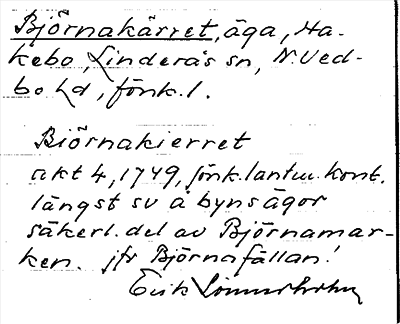 Björnakärret, äga, Ha-
kebo, Linderås sn, N. Ved-
bo hd, jönk. l.
Biörnakierret
akt 4, 1749, jönk. lantm. kont.
längst sv å byns ägor
säkerl. del av Björnamar-
ken. jfr Björnafällan!
Erik